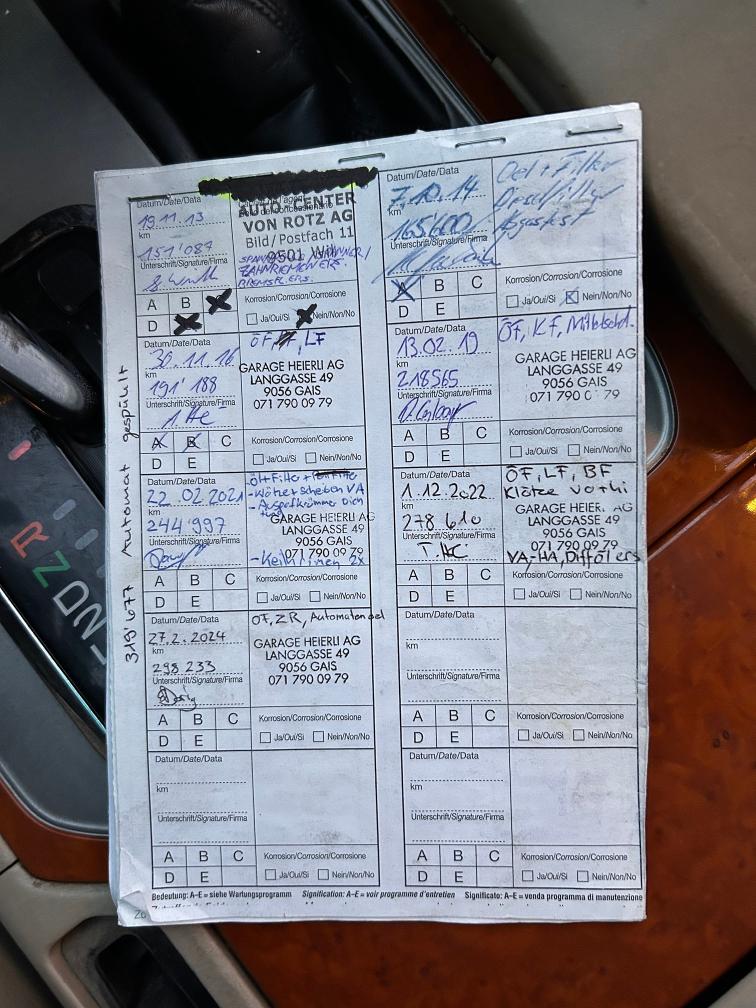 Datum/Date/Data
19.11.13
km
151'087
Unterschrift/Signature/Firma
AUTO-CENTER
VON ROTZ AG
Bild/Postfach 11
9501 Wil
ZAHNRIEMEN ERS.
A B
D
Korrosion/Corrosion/Corrosione
Ja/Oui/Si Nein/Non/No
Datum/Date/Data
7.10.14
km
165600
Unterschrift/Signature/Firma
Oel + Filter
Dieselfilter
Abgastest
A B C
D E
Korrosion/Corrosion/Corrosione
Ja/Oui/Si Nein/Non/No
Datum/Date/Data
30.11.16
km
191'188
Unterschrift/Signature/Firma
ÖF, LF
GARAGE HEIERLI AG
LANGGASSE 49
9056 GAIS
071 790 09 79
A B C
D E
Korrosion/Corrosion/Corrosione
Ja/Oui/Si Nein/Non/No
Datum/Date/Data
13.02.19
km
218565
Unterschrift/Signature/Firma
ÖF, KF,
GARAGE HEIERLI AG
LANGGASSE 49
9056 GAIS
071 790 0 79
A B C
D E
Korrosion/Corrosion/Corrosione
Ja/Oui/Si Nein/Non/No
Datum/Date/Data
22.02.2021
km
244'997
Unterschrift/Signature/Firma
Öl + Filter +
- Klötze + Scheiben VA
GARAGE HEIERLI AG
LANGGASSE 49
9056 GAIS
071 790 09 79
- Keilriemen 2x
A B C
D E
Korrosion/Corrosion/Corrosione
Ja/Oui/Si Nein/Non/No
Datum/Date/Data
1.12.2022
km
278 610
Unterschrift/Signature/Firma
ÖF, LF, BF
Klötze vo+hi
GARAGE HEIER. AG
LANGGASSE 49
9056 GAIS
071 790 09 79
VA, HA, Difföl ers
A B C
D E
Korrosion/Corrosion/Corrosione
Ja/Oui/Si Nein/Non/No
Datum/Date/Data
27.2.2024
km
298 233
Unterschrift/Signature/Firma
ÖF, ZR, Automatenoel
GARAGE HEIERLI AG
LANGGASSE 49
9056 GAIS
071 790 09 79
A B C
D E
Korrosion/Corrosion/Corrosione
Ja/Oui/Si Nein/Non/No
Datum/Date/Data
km
Unterschrift/Signature/Firma
A B C
D E
Korrosion/Corrosion/Corrosione
Ja/Oui/Si Nein/Non/No
Datum/Date/Data
km
Unterschrift/Signature/Firma
A B C
D E
Korrosion/Corrosion/Corrosione
Ja/Oui/Si Nein/Non/No
Datum/Date/Data
km
Unterschrift/Signature/Firma
A B C
D E
Korrosion/Corrosion/Corrosione
Ja/Oui/Si Nein/Non/No
Bedeutung: A–E = siehe Wartungsprogramm Signification: A–E = voir programme d'entretien Significato: A–E = venda programma di manutenzione
319'677 Automat gespühlt
R
N
D